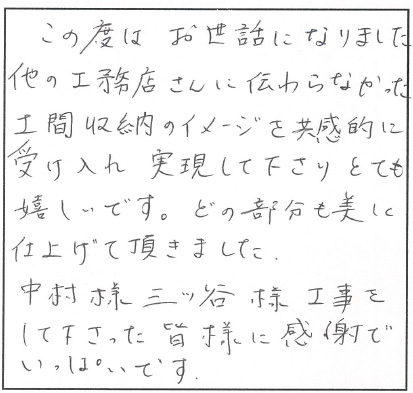 この度は お世話になりました
他の工務店さんに伝わらなかった
土間収納のイメージを共感的に
受け入れ 実現して下さりとても
嬉しいです。どの部分も美しく
仕上げて頂きました.
中村様 三ッ谷様 工事を
して下さった皆様に感謝で
いっぱいです.